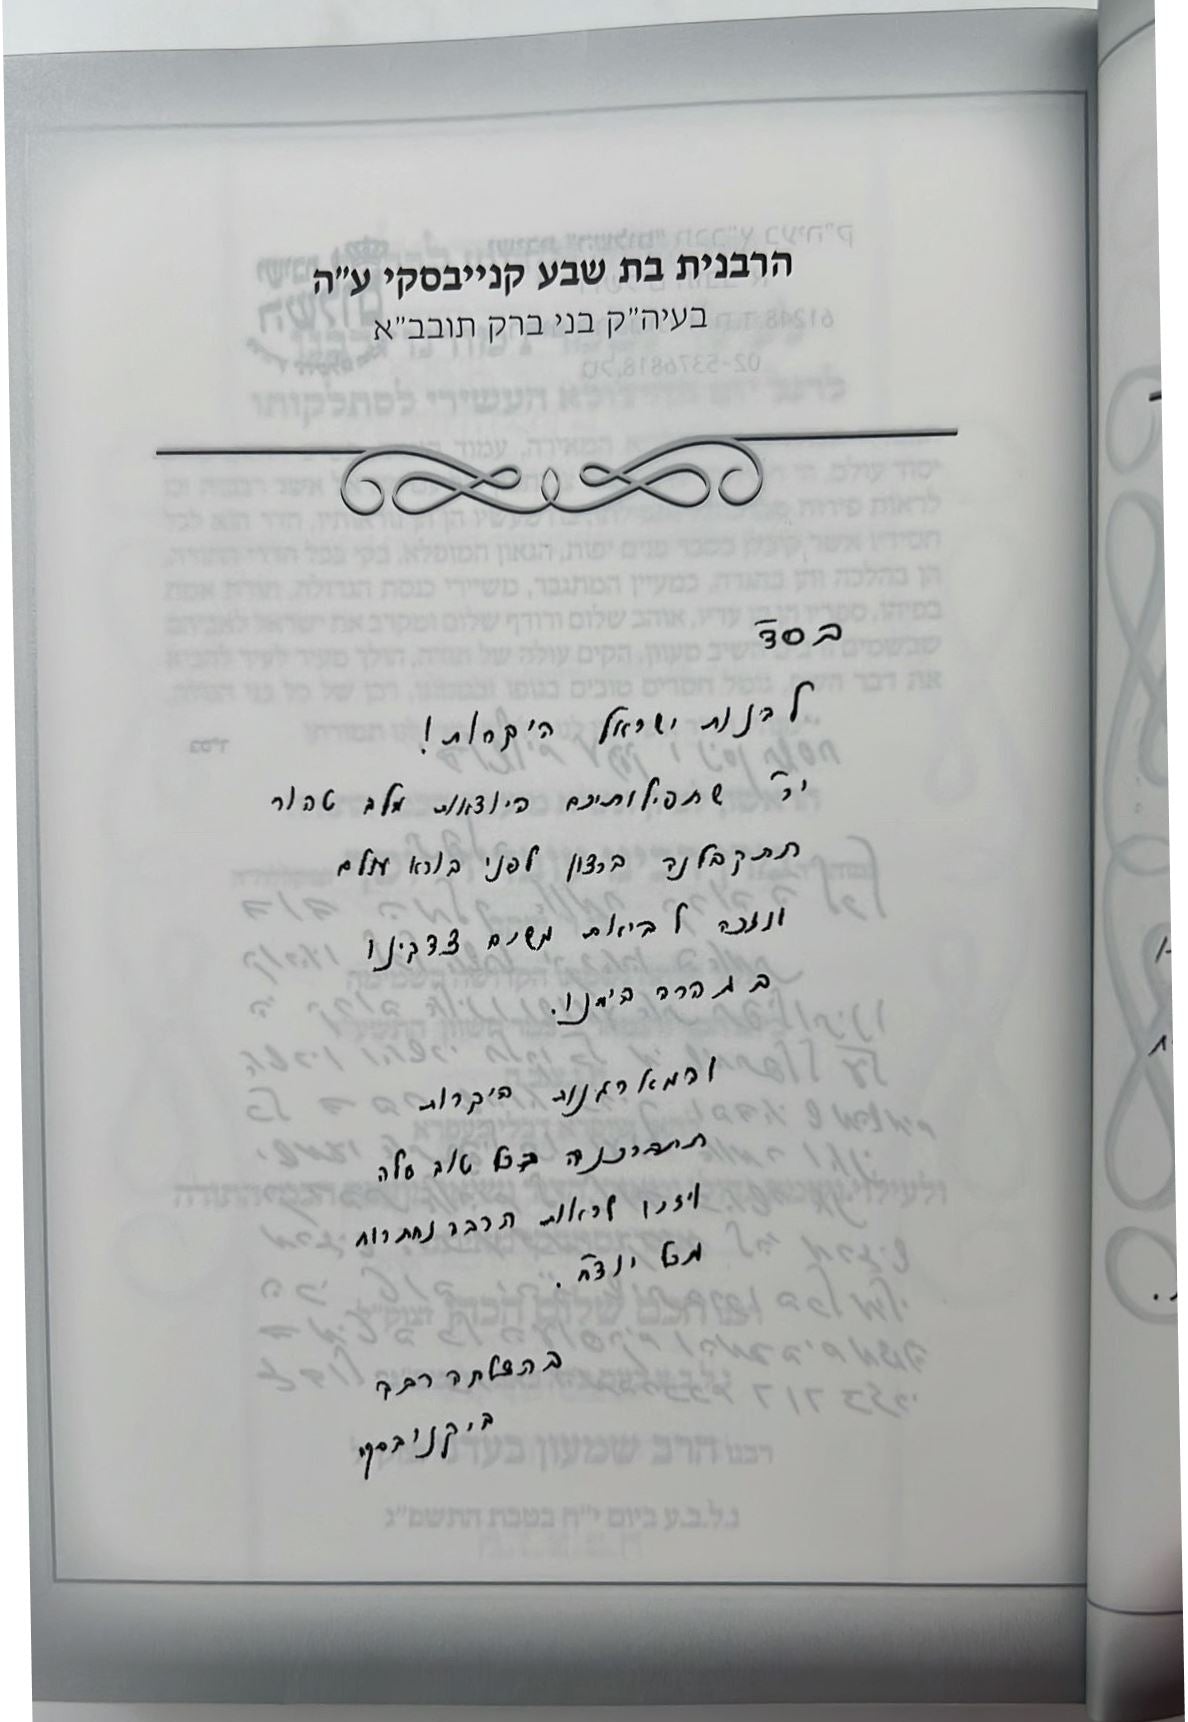 הרבנית בת שבע קנייבסקי ע"ה
בעיה"ק בני ברק תובב"א
בסד
לבנות ישראל היקרות!
יר שתפילותיכם היוצאות מלב טהור
תתקבלנה ברצון לפני בורא עולם
ונזכה לביאת משיח צדקינו
במהרה בימנו.
והמארגנות היקרות
תתברכנה בכל טוב סלה
ויזכו לראות הרבה נחת רוח
מכל יוצח.
בהצלחה רבה
ב. קניבסקי